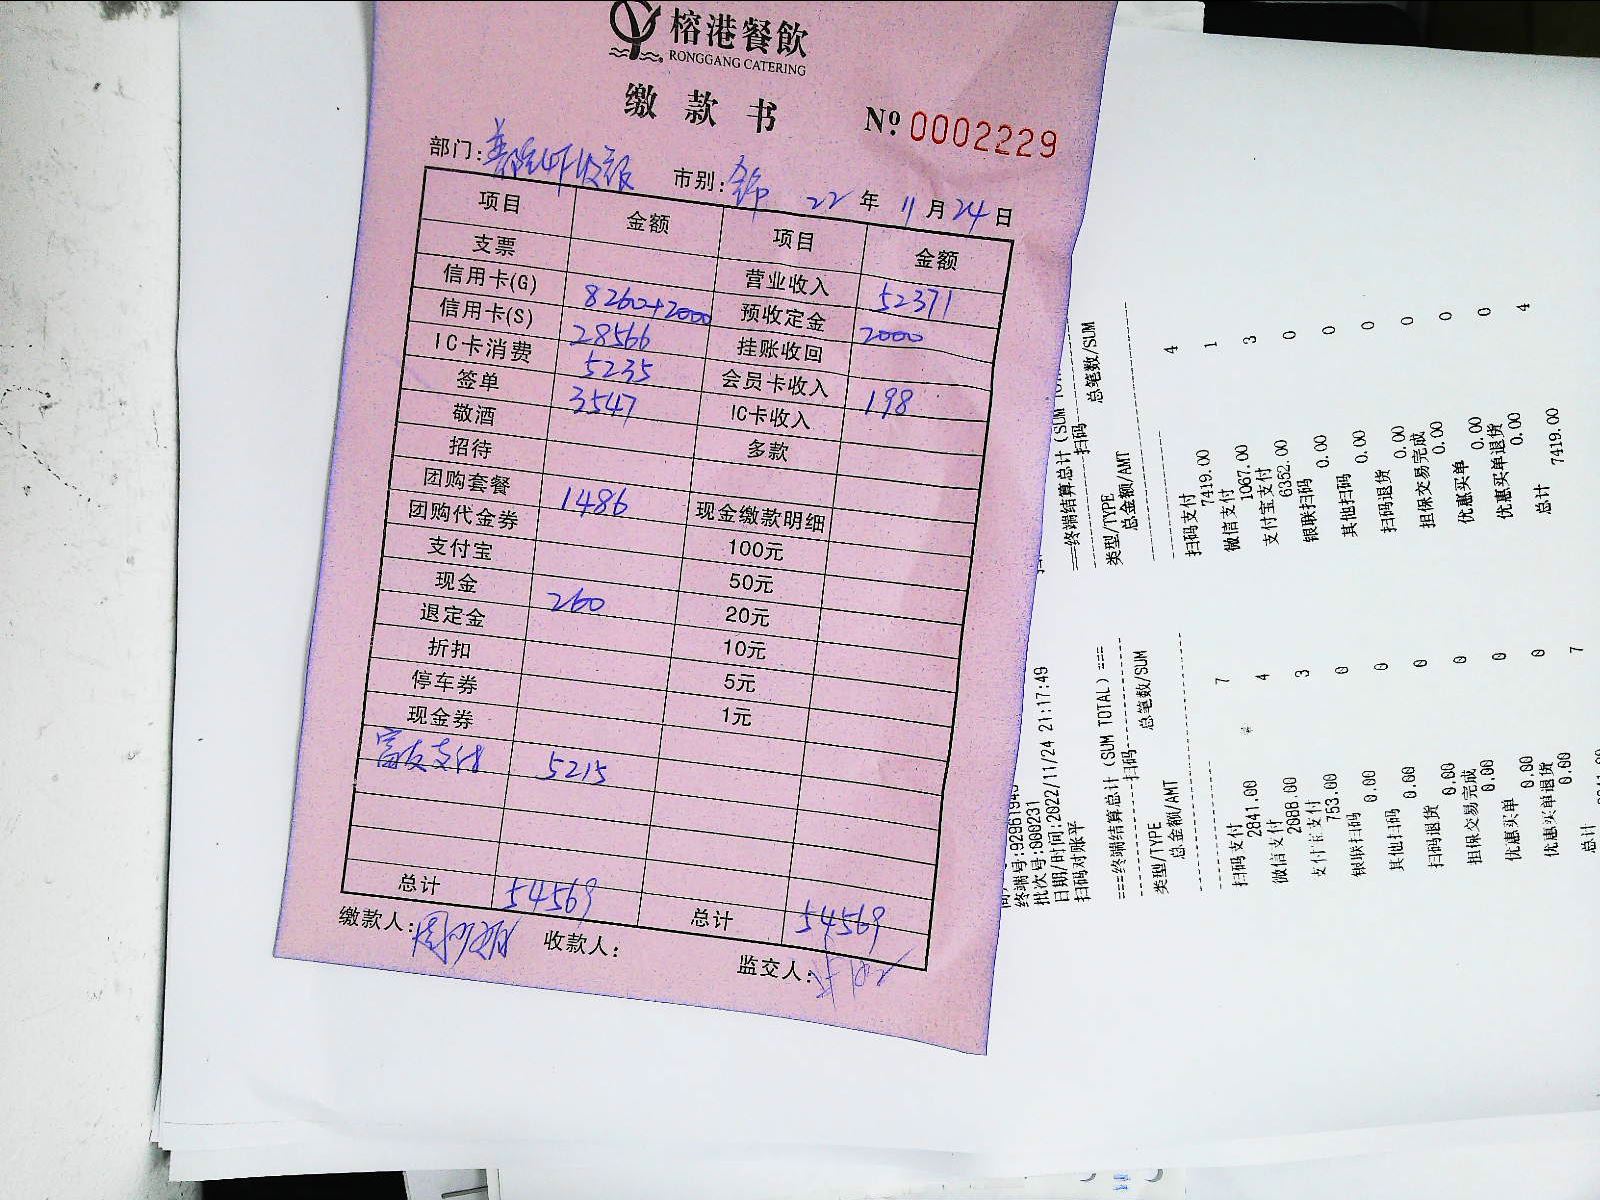 榕港餐飲
RONGGANG CATERING
缴款书 Nº 0002229
部门: 市别: 22年11月24日
项目 金额 项目 金额
支票 营业收入 52371
信用卡(G) 8260+2000 预收定金 2000
信用卡(S) 28566 挂账收回
IC卡消费 5235 会员卡收入 198
签单 3547 IC卡收入
敬酒 多款
招待
团购套餐 1486 现金缴款明细
团购代金券 100元
支付宝 50元
现金 260 20元
退定金 10元
折扣 5元
停车券 1元
现金券
富友支付 5215
总计 54569 总计 54569
缴款人: 收款人: 监交人:
===终端结算总计(SUM
扫码
类型/TYPE 总笔数/SUM
总金额/AMT
扫码支付 4
7419.00
微信支付 1
1067.00
支付宝支付 3
6352.00
银联扫码 0
0.00
其他扫码 0
0.00
扫码退货 0
0.00
担保交易完成 0
0.00
优惠买单 0
0.00
优惠买单退货 0
0.00
总计 4
7419.00
批次号:000231
日期/时间:2022/11/24 21:17:49
扫码对账平
===终端结算总计(SUM TOTAL)===
扫码
类型/TYPE 总笔数/SUM
总金额/AMT
扫码支付 7
2841.00
微信支付 4
2088.00
支付宝支付 3
753.00
银联扫码 0
0.00
其他扫码 0
0.00
扫码退货 0
0.00
担保交易完成 0
0.00
优惠买单 0
0.00
优惠买单退货 0
0.00
总计 7